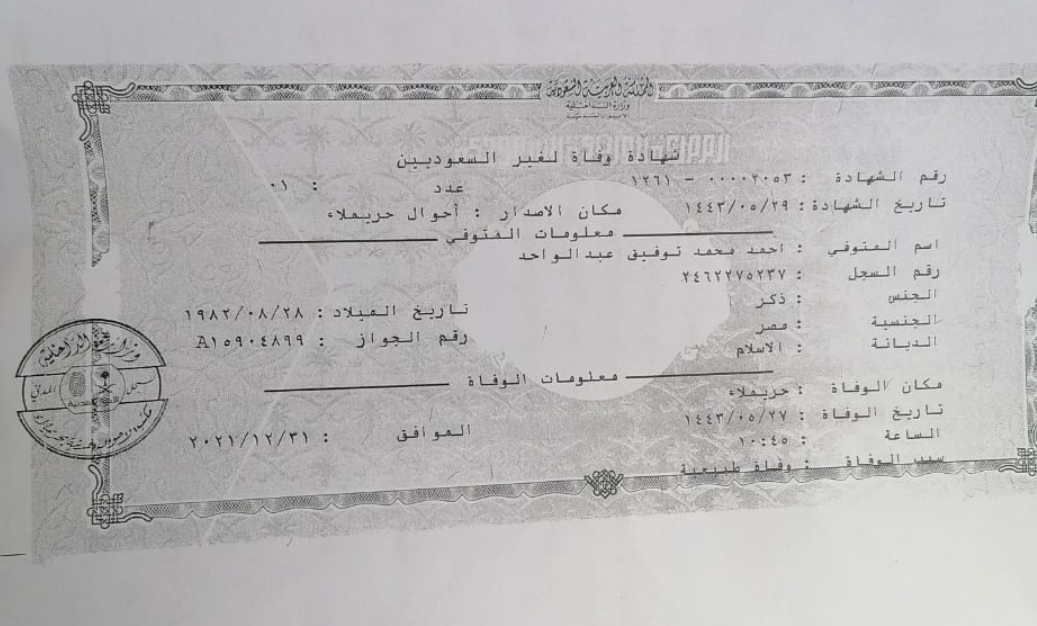 المملكة العربية السعودية
وزارة الداخلية
شهادة وفاة لغير السعوديين
رقم الشهادة : ٠٠٠٠٢٠٥٣ - ١٢٦١ عدد : ٠١
تاريخ الشهادة : ١٤٤٣/٠٥/٢٩ مكان الاصدار : أحوال حريملاء
معلومات المتوفي
اسم المتوفي : احمد محمد توفيق عبدالواحد
رقم السجل : ٢٤٦٢٢٧٥٢٣٧
الجنس : ذكر تاريخ الميلاد : ١٩٨٢/٠٨/٢٨
الجنسية : مصر رقم الجواز : A١٥٩٠٤٨٩٩
الديانة : الاسلام
معلومات الوفاة
مكان الوفاة : حريملاء
تاريخ الوفاة : ١٤٤٣/٠٥/٢٧ الموافق : ٢٠٢١/١٢/٣١
الساعة : ١٠:٤٥
سبب الوفاة : وفاة طبيعية
وزارة الداخلية